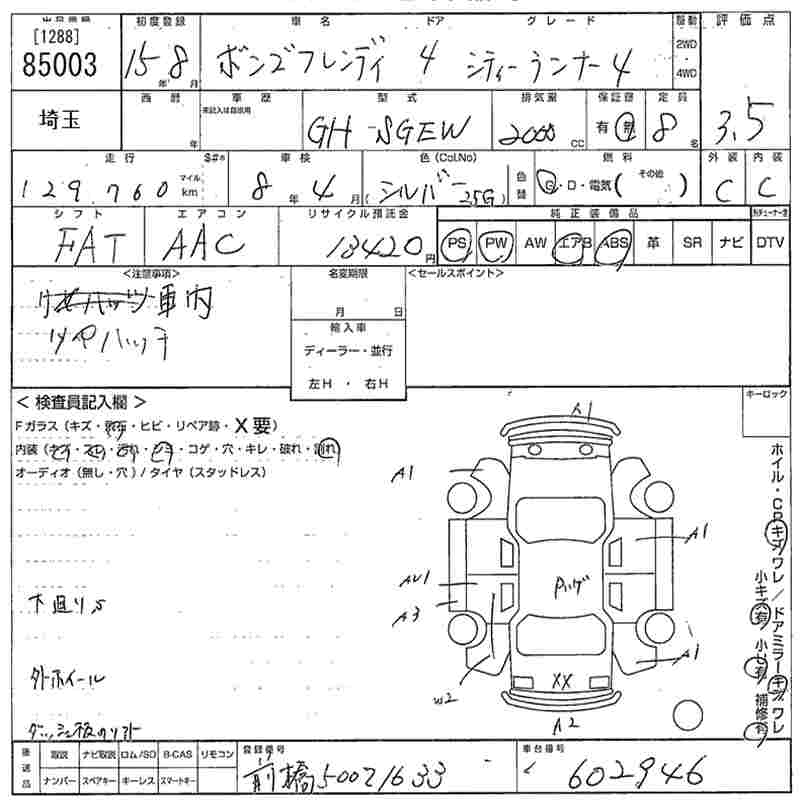 [1288]
85003
初度登録
車名
ドア
グレード
駆動
評価点
15年8月
ボンゴフレンディ
4
シティーランナー4
2WD
・
4WD
3.5
埼玉
西暦
年
車歴
未記入は自家用
型式
GH-SGEW
排気量
2000
CC
保証書
有・無
定員
8名
走行
S#*
129,760
マイル
km
車検
8年4月
色(Col.No)
(シルバー 25G)
色替
燃料
G・D・電気(その他)
外装
C
内装
C
シフト
FAT
エアコン
AAC
リサイクル預託金
13420円
純正装備品
PS
PW
AW
エアB
ABS
革
SR
ナビ
DTV
<注意事項>
車内
リヤハッチ
名変期限
月 日
輸入車
ディーラー・並行
左H・右H
<セールスポイント>
<検査員記入欄>
Fガラス(キズ・飛石・ヒビ・リペア跡・X要)
内装(キズ・スレ・汚れ・シミ・コゲ・穴・キレ・破れ・割れ)
オーディオ(無し・穴)/タイヤ(スタッドレス)
下廻りS
外ホイール
キーロック
A1
A1
A1
AU1
A3
W2
A1
XX
A2
Pハゲ
ホイル・CPキズワレ/ドアミラーキズワレ
小キズ有 小凹有 補修有
後送品
取説
ナビ取説
ロム/SD
B-CAS
リモコン
ナンバー
スペアキー
キーレス
スマートキー
登録番号
前橋500そ1633
車台番号
602946